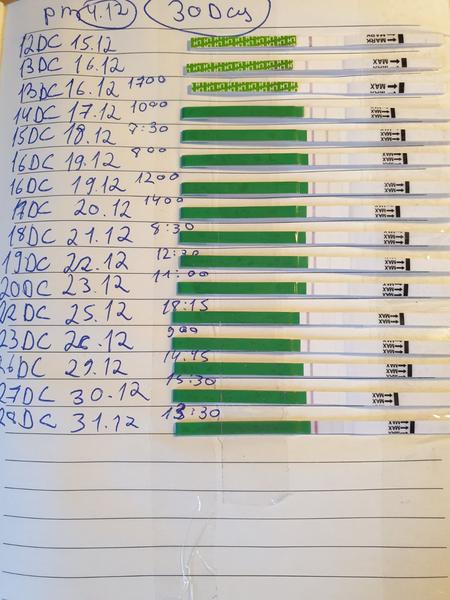 pm 4.12 30 Days
12DC 15.12 MARK
13DC 16.12 MAX
13DC 16.12 1700 MAX
14DC 17.12 1000 MAX
15DC 18.12 9:30 MAX
16DC 19.12 800 MAX
16DC 19.12 1200 MAX
17DC 20.12 1400 MAX
18DC 21.12 8:30 MAX
19DC 22.12 12:30 MAX
20DC 23.12 11:00 MAX
22DC 25.12 18:15 MAX
23DC 26.12 900 MAX
26DC 29.12 14.45 MAX
27DC 30.12 15:30 MAX
28DC 31.12 13:30 MAX